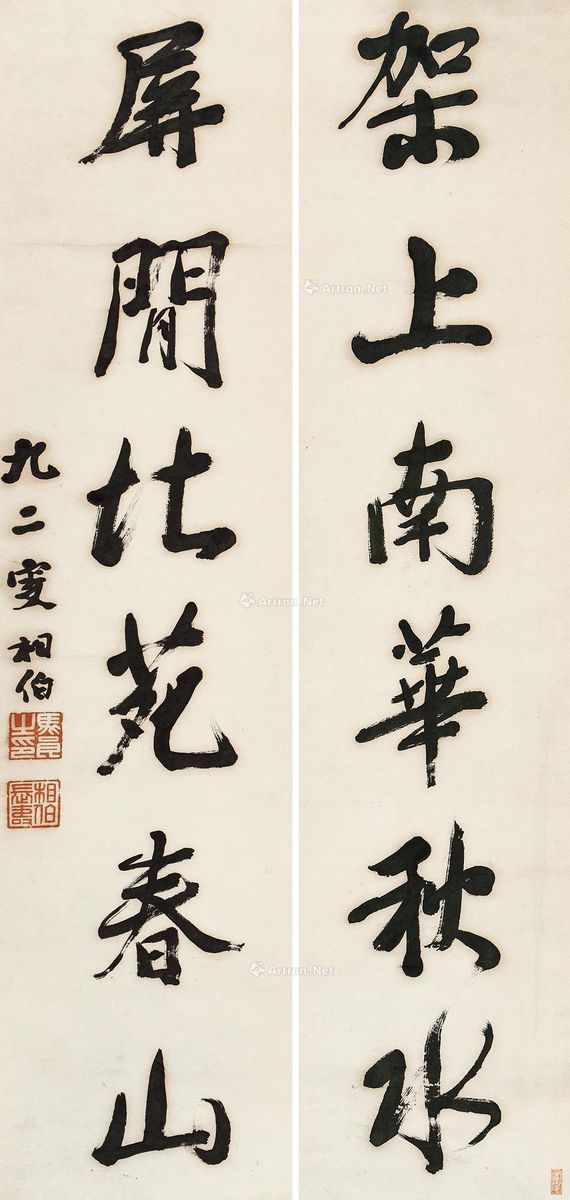 架上南華秋水
屏間北苑春山
九二叟相伯
馬良之印
相伯長壽
Artron.Net
Artron.Net
Artron.Net